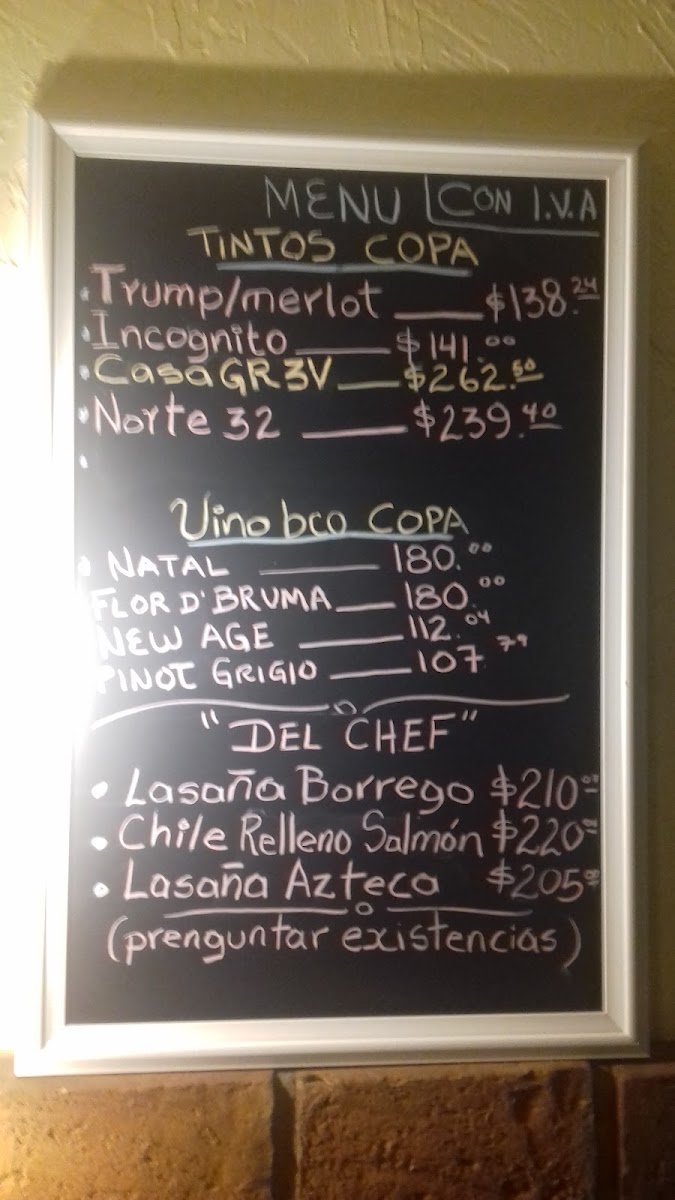 MENU CON I.V.A
TINTOS COPA
Trump/merlot $138.24
Incognito $141.00
Casa GR 3V $262.50
Norte 32 $239.40
Vino bco COPA
NATAL 180.00
FLOR D' BRUMA 180.00
NEW AGE 112.04
PINOT GRIGIO 107.79
"DEL CHEF"
Lasaña Borrego $210.00
Chile Relleno Salmón $220.00
Lasaña Azteca $205.00
(prenguntar existencias)